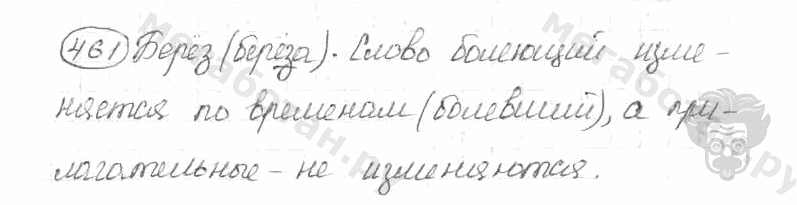 461 Берёз (берёза). Слово болеющий изме-
няется по временам (болевший), а при-
лагательные - не изменяются.
Мегаботан.ру